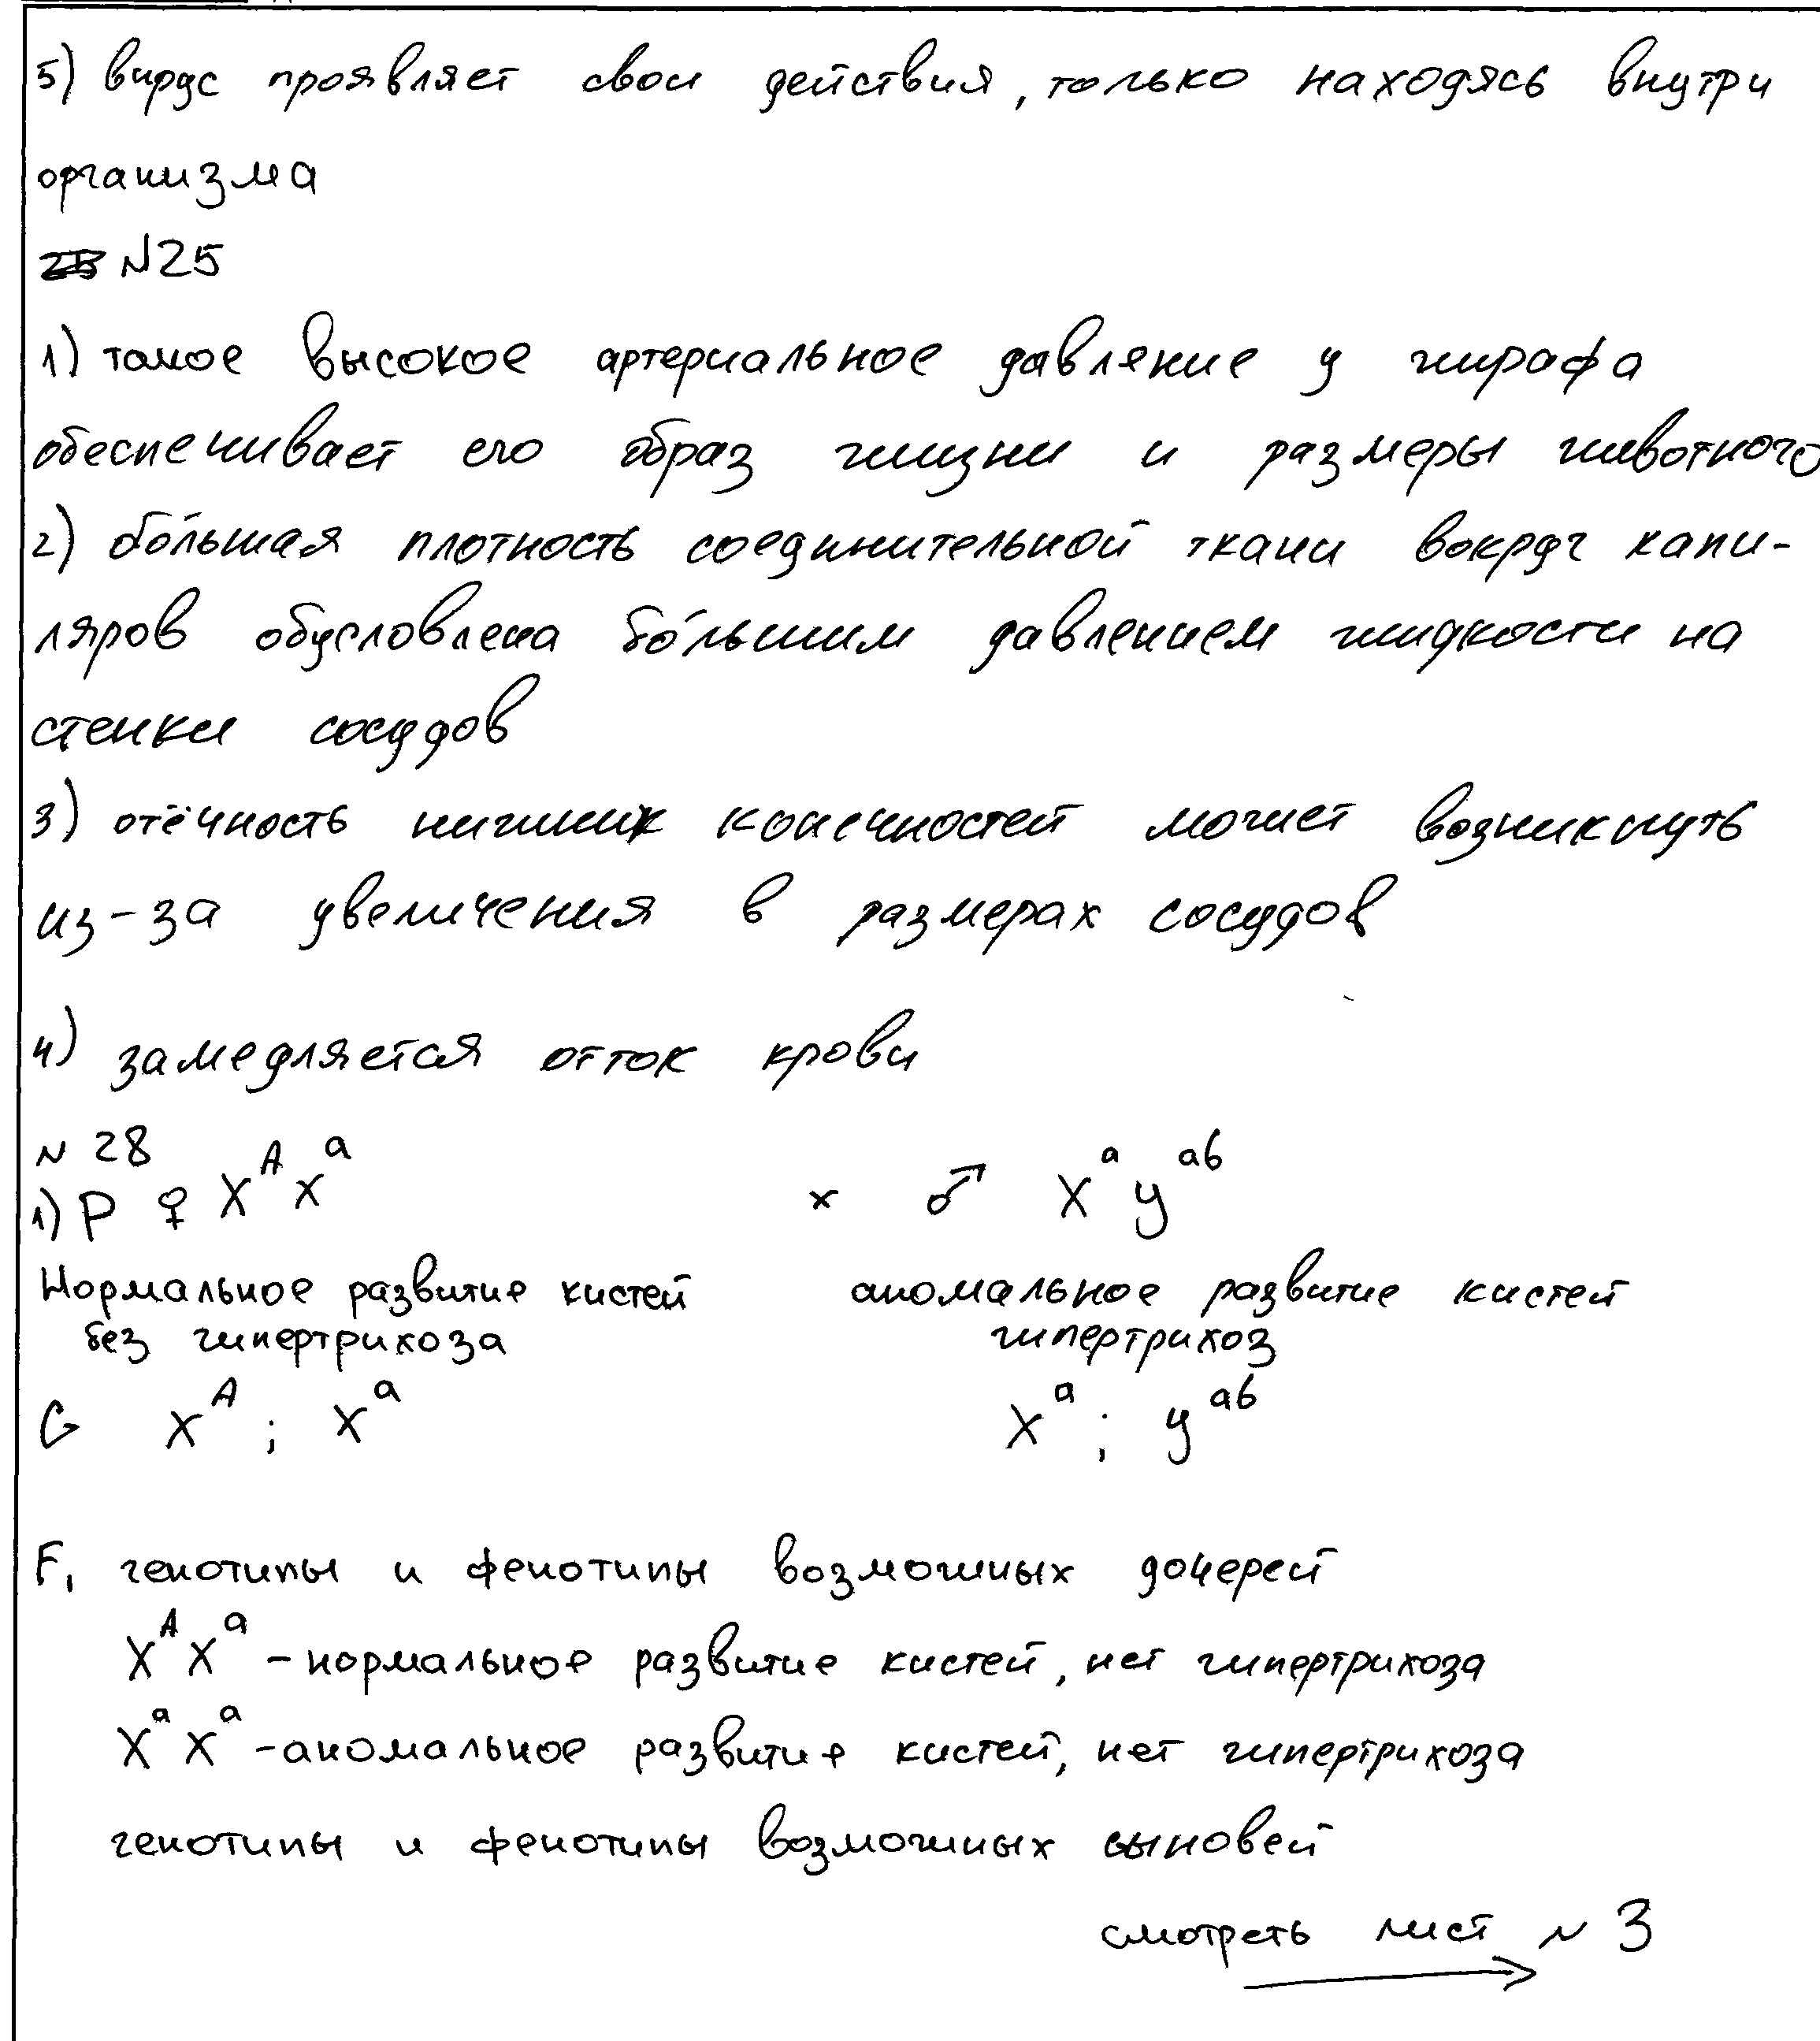 5) вирус проявляет свои действия, только находясь внутри
организма
N25
1) такое высокое артериальное давляние у жирафа
обеспечивает его образ жизни и размеры животного
2) бо́льшая плотность соединительной ткани вокруг капи-
ляров обусловлена бо́льшим давлением жидкости на
стенки сосудов
3) отёчность нижних конечностей может возникнуть
из-за увеличения в размерах сосудов
4) замедляется отток крови
N 28
1) P ♀ X^A X^a × ♂ X^a y^ab
Нормальное развитие кистей аномальное развитие кистей
без гипертрихоза гипертрихоз
G X^A ; X^a X^a ; y^ab
F₁ генотипы и фенотипы возможных дочерей
X^A X^a – нормальное развитие кистей, нет гипертрихоза
X^a X^a – аномальное развитие кистей, нет гипертрихоза
генотипы и фенотипы возможных сыновей
смотреть лист N 3